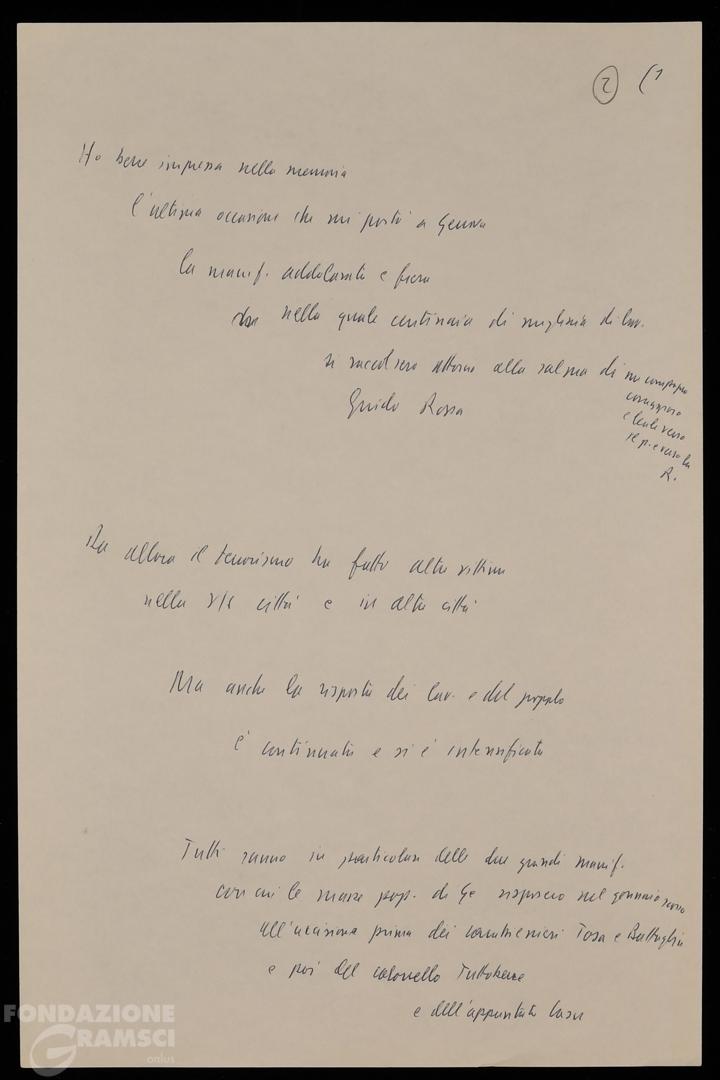 2 (1
Ho bene impressa nella memoria
l'ultima occasione che mi portò a Genova
la manif. addolorata e fiera
nella quale centinaia di migliaia di lav.
si raccolsero attorno alla salma di un compagno
coraggioso
e leale verso
il p. e verso la
R.
Guido Rossa
Da allora il terrorismo ha fatto altre vittime
nella v/s città e in altre città
Ma anche la risposta dei lav. e del popolo
è continuata e si è intensificata
Tutti sanno in particolare delle due grandi manif.
con cui le masse pop. di Ge risposero nel gennaio scorso
all'uccisione prima dei carabinieri Tosa e Battaglin
e poi del colonnello Tuttobene
e dell'appuntato Casu
FONDAZIONE
GRAMSCI
onlus